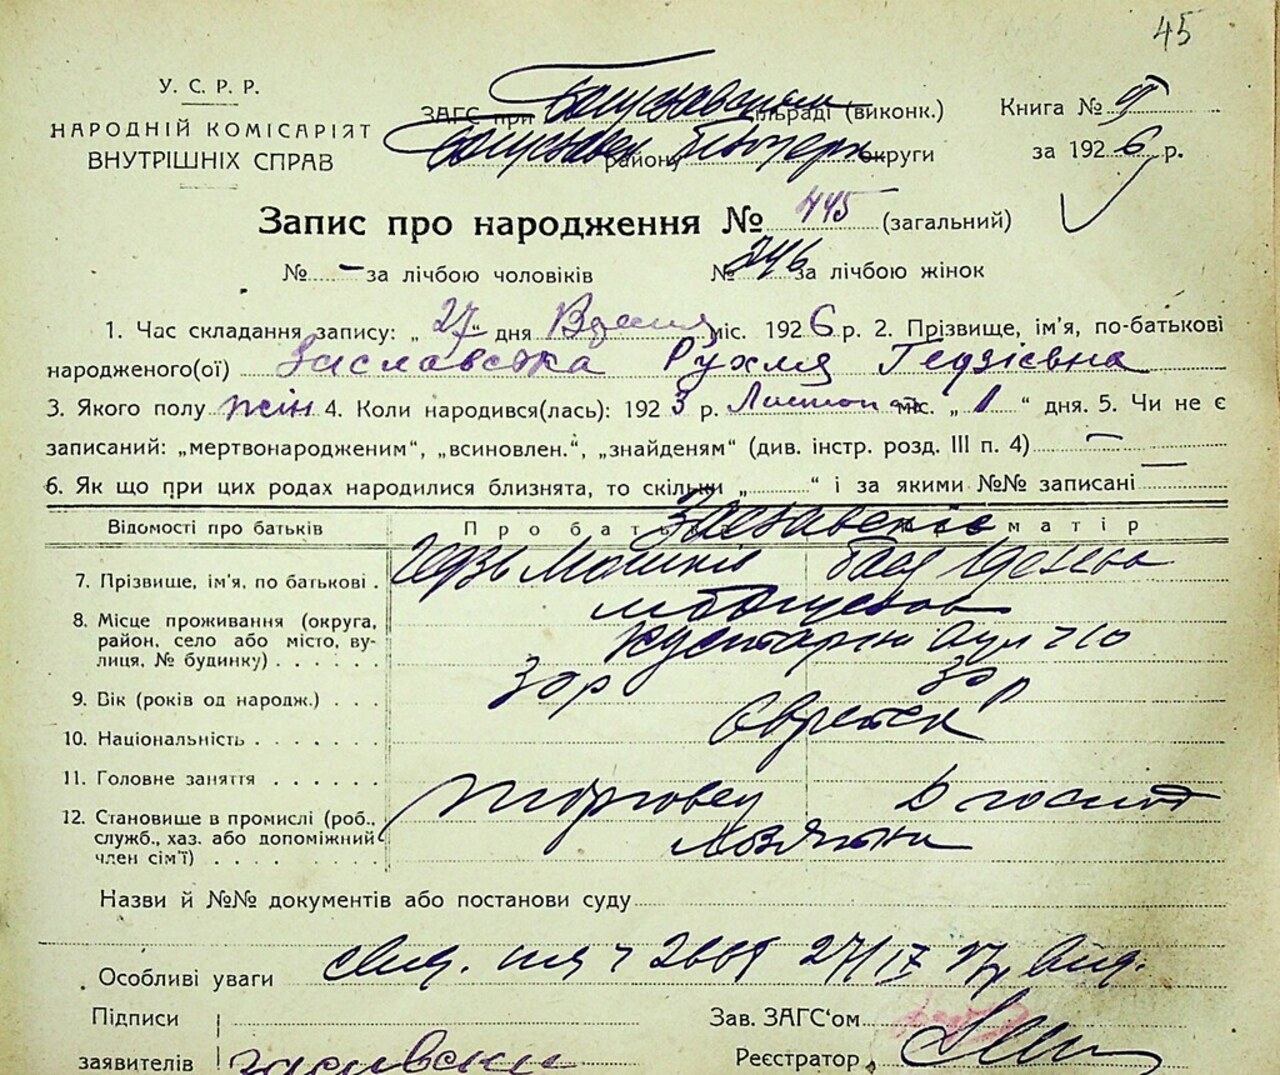 45
У. С. Р. Р.
НАРОДНІЙ КОМІСАРІЯТ
ВНУТРІШНІХ СПРАВ
ЗАГС при Богуславському сільраді (виконк.)
Богуславськ району Білоцерк округи
Книга № 9
за 1926 р.
Запис про народження № 445 (загальний)
№ - за лічбою чоловіків № 246 за лічбою жінок
1. Час складання запису: „ 27 “ дня Вересня міс. 1926 р. 2. Прізвище, ім'я, по-батькові
народженого(ої) Заславська Рухля Гедзієвна
3. Якого полу жін 4. Коли народився(лась): 1923 р. Листоп міс. „ 1 “ дня. 5. Чи не є
записаний: „мертвонародженим“, „всиновлен.“, „знайденям“ (див. інстр. розд. III п. 4) —
6. Як що при цих родах народилися близнята, то скільки „ “ і за якими №№ записані —
Відомості про батьків Про батька Про матір
Заславські
7. Прізвище, ім'я, по батькові . Гедзь Мошків
8. Місце проживання (округа,
район, село або місто, ву-
лиця, № будинку) . . . . . .
м Богуслав
9. Вік (років од народж.) . . . 30 р 30 р
10. Національність . . . . . . . Єврейськ
11. Головне заняття . . . . . . Торговец Д господ
12. Становище в промислі (роб.,
служб., хаз. або допоміжний
член сім'ї) . . . . . . . . .
хозяїни
Назви й №№ документів або постанови суду
Особливі уваги 27/IX
Підписи
заявителів
Зав. ЗАГС'ом
Реєстратор